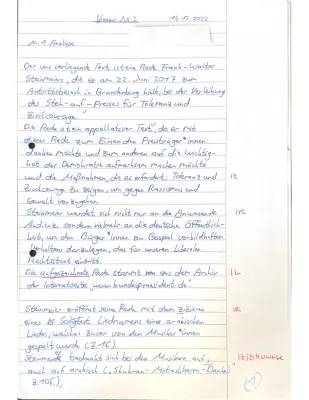 Klausur Nr. 2 14.11.2022
Nr. 1 Analyse
Der uns vorliegende Text ist eine Rede Frank-Walter
Steinmeiers, die er am 22. Juni 2017 zum
Antrittsbesuch in Brandenburg hielt, bei der Verleihung
des Steh-auf-Preises für Toleranz und
Zivilcourage.
Die Rede ist ein appellativer Text, da er mit
dieser Rede zum Einen den Preisträger*innen
danken möchte und zum anderen auf die Wichtig-
keit der Demokratie aufmerksam machen möchte
und die Maßnahmen, die es erfordert, Toleranz und
Zivilcourage zu zeigen, um gegen Rassismus und
Gewalt vorzugehen.
Steinmeier wendet sich nicht nur an die Anwesende
Audienz, sondern vielmehr an die deutsche Öffentlich-
keit, um den Bürger*innen ein Beispiel vorbildhaften
Verhaltens darzulegen, das für unseren liberalen
Rechtsstaat eintritt.
Die aufgezeichnete Rede stammt von aus dem Archiv
der Internetseite „www.bundespraesident.de"
Steinmeier eröffnet seine Rede mit dem Zitieren
eines Liednamens eines arabischen
Liedes, welches zuvor von den Musiker*innen
gespielt wurde (Z.16).
Steinmeier bedankt sich bei den Musikern auf,
auch auf arabisch („Shukran
Z.106),
1